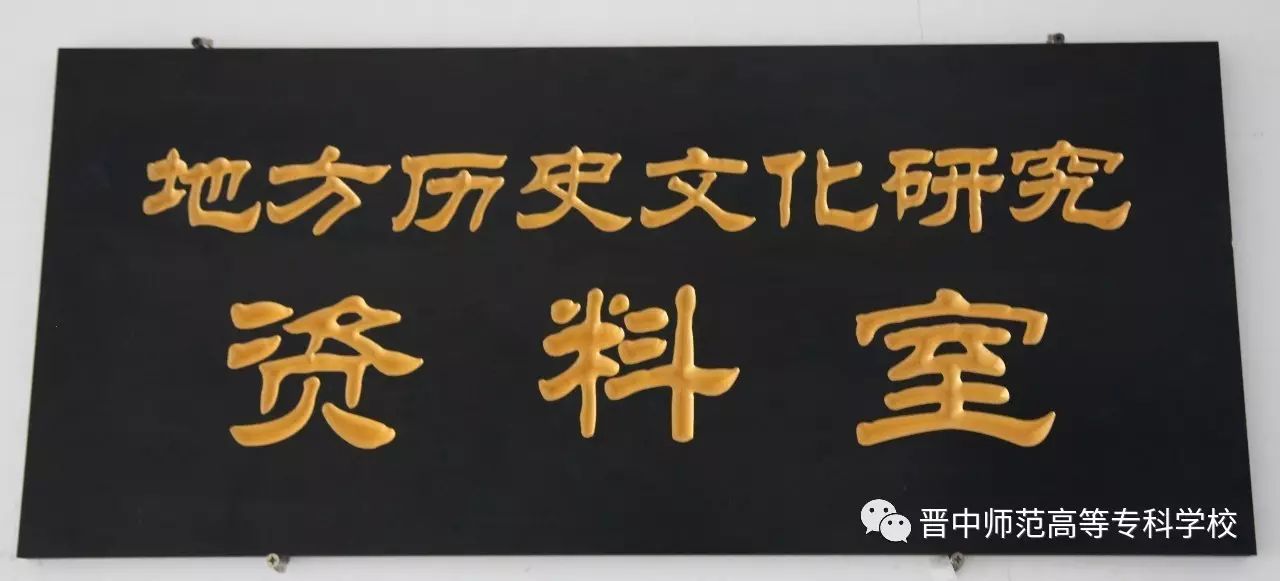 地方历史文化研究
资料室
晋中师范高等专科学校